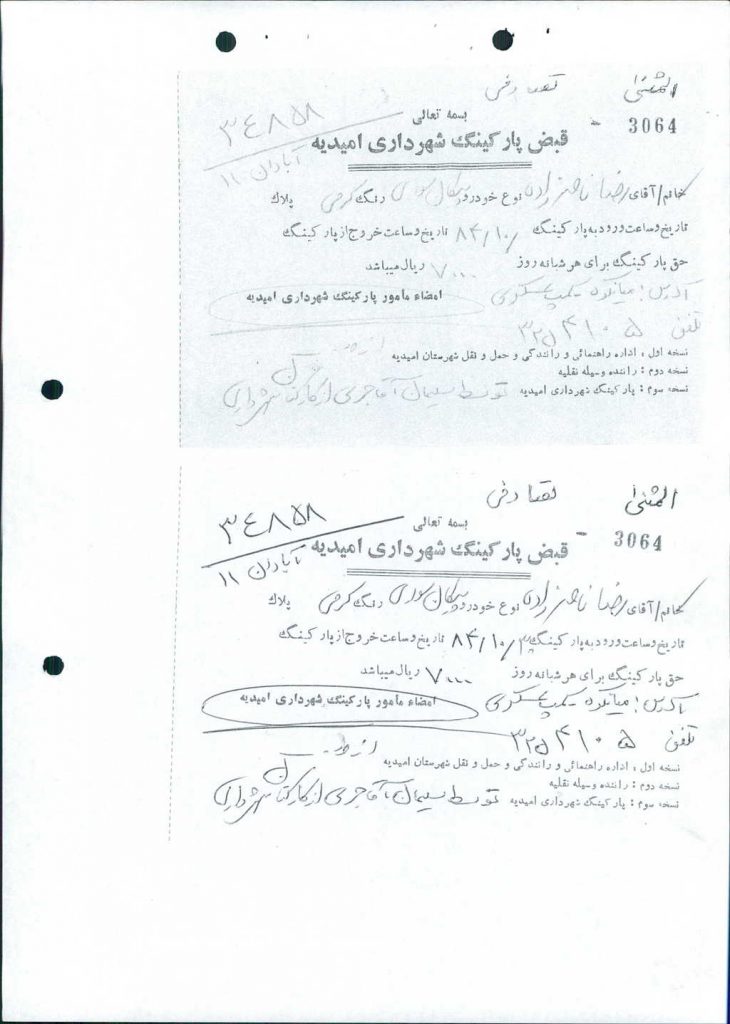 المثنی تصادفی
بسمه تعالی
3064
۳٤۸۵۸
قبض پارکینگ شهرداری امیدیه
آبادان ۱۱
خانم/آقای رضا ناصرزاده نوع خودرو پیکان سواری رنگ کرمی پلاک
تاریخ و ساعت ورود به پارکینگ ۸۴/۱۰/ تاریخ و ساعت خروج از پارکینگ
حق پارکینگ برای هر شبانه روز ۷۰۰۰ ریال میباشد
آدرس: میانکوه - کمپ عسکری امضاء مأمور پارکینگ شهرداری امیدیه
تلفن ۳۲۵۴۱۰۵
نسخه اول : اداره راهنمائی و رانندگی و حمل و نقل شهرستان امیدیه
نسخه دوم : راننده وسیله نقلیه
نسخه سوم : پارکینگ شهرداری امیدیه توسط سیمان آقاجری از کارکنان شهرداری
المثنی تصادفی
بسمه تعالی
3064
۳٤۸۵۸
قبض پارکینگ شهرداری امیدیه
آبادان ۱۱
خانم/آقای رضا ناصرزاده نوع خودرو پیکان سواری رنگ کرمی پلاک
تاریخ و ساعت ورود به پارکینگ ۸۴/۱۰/۳ تاریخ و ساعت خروج از پارکینگ
حق پارکینگ برای هر شبانه روز ۷۰۰۰ ریال میباشد
آدرس: میانکوه - کمپ عسکری امضاء مأمور پارکینگ شهرداری امیدیه
تلفن ۳۲۵۴۱۰۵
نسخه اول : اداره راهنمائی و رانندگی و حمل و نقل شهرستان امیدیه
نسخه دوم : راننده وسیله نقلیه
نسخه سوم : پارکینگ شهرداری امیدیه توسط سیمان آقاجری از کارکنان شهرداری